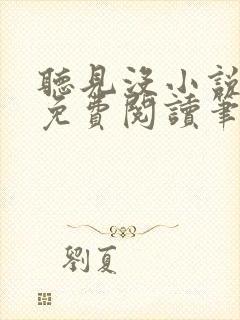 聽見沒小說
免費閱讀筆
劉夏